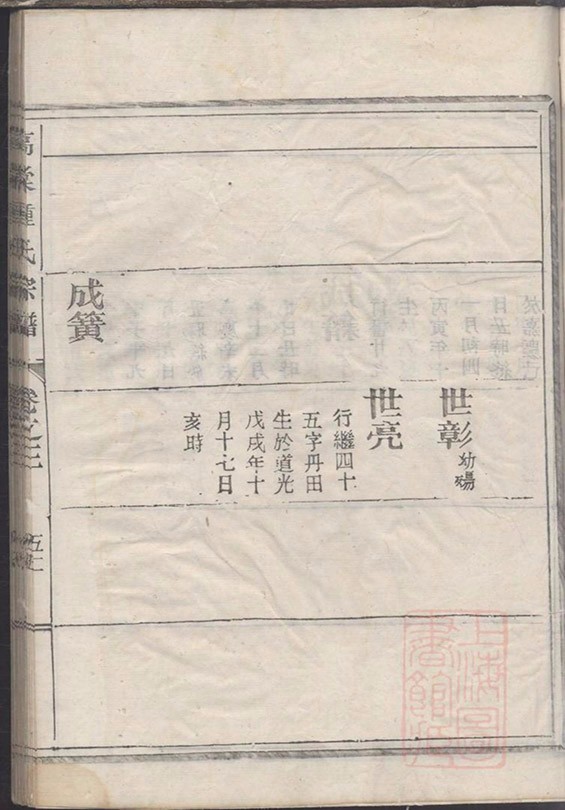 世彰 幼殤
世亮
行繼四十
五字丹田
生於道光
戊戌年十
月十七日
亥時
成簧
鍾氏宗譜
卷之三
上海圖
書館藏